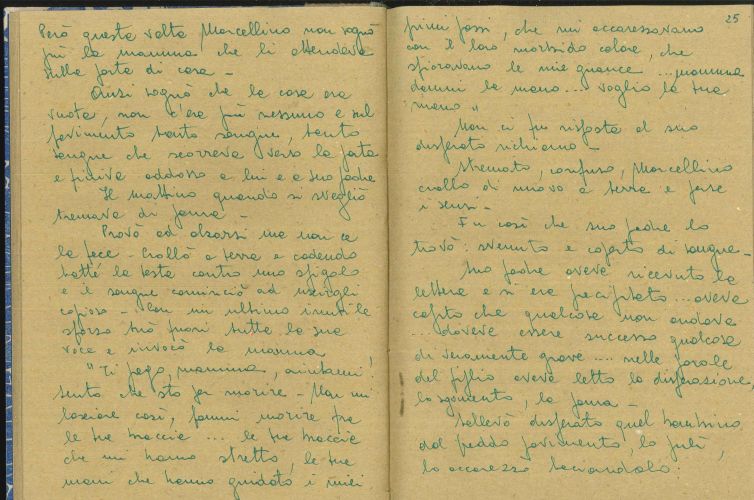 Però questa volta Marcellino non sognò
più la mamma che li attendeva
sulla porta di casa -
Quasi sognò che la casa era
vuota, non c'era più nessuno e sul
pavimento tanto sangue, tanto
sangue che scorreva verso la porta
e finiva addosso a lui e a suo padre
Il mattino quando si svegliò
tremava di paura -
Provò ad alzarsi ma non ce
la fece - Crollò a terra e cadendo
batté la testa contro uno spigolo
e il sangue cominciò ad uscirgli
copioso - Con un ultimo inutile
sforzo tirò fuori tutta la sua
voce e invocò la mamma
"Ti prego, mamma, aiutami,
sento che sto per morire - Non mi
lasciare così, fammi morire fra
le tue braccia ... le tue braccia
che mi hanno stretto, le tue
mani che hanno guidato i miei
25
primi passi, che mi accarezzavano
con il loro morbido calore, che
sfioravano le mie guance ... mamma
dammi la mano ... voglio la tua
mano"
Non ci fu risposta al suo
disperato richiamo -
Stremato, confuso, Marcellino
crollò di nuovo a terra e perse
i sensi -
Fu così che suo padre lo
trovò: svenuto e coperto di sangue -
Suo padre aveva ricevuto la
lettera e si era precipitato ... aveva
capito che qualcosa non andava
... doveva essere successo qualcosa
di veramente grave .... nelle parole
del figlio aveva letto la disperazione
lo sgomento, la paura -
Sollevò disperato quel bambino
dal freddo pavimento, lo pulì,
lo accarezzò baciandolo.